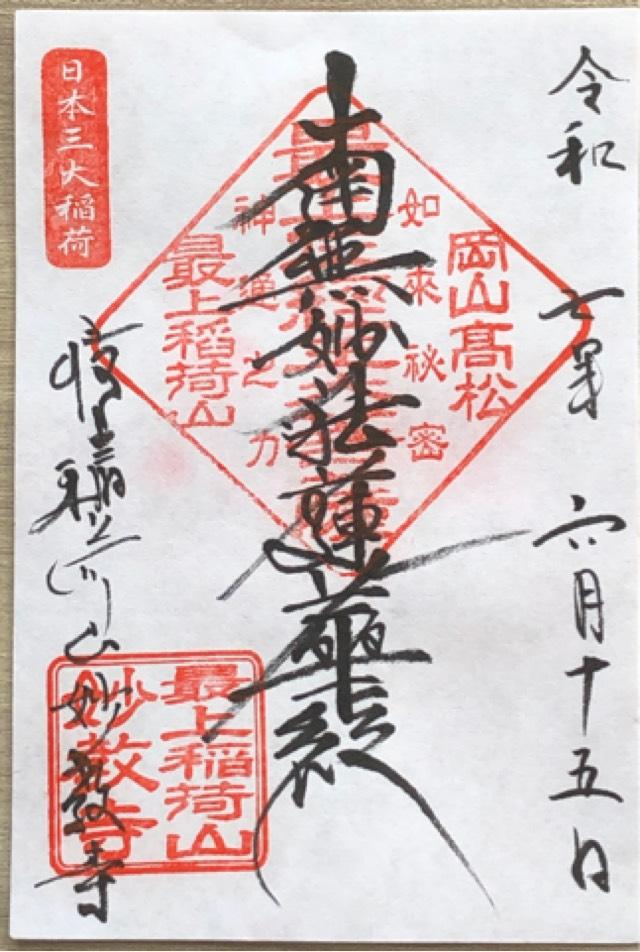 令和 七年 六月十五日
岡山高松
如来秘密
南無妙法蓮華経
神通之力
最上稲荷山
日本三大稲荷
稲荷山妙教寺
最上稲荷山
妙教寺